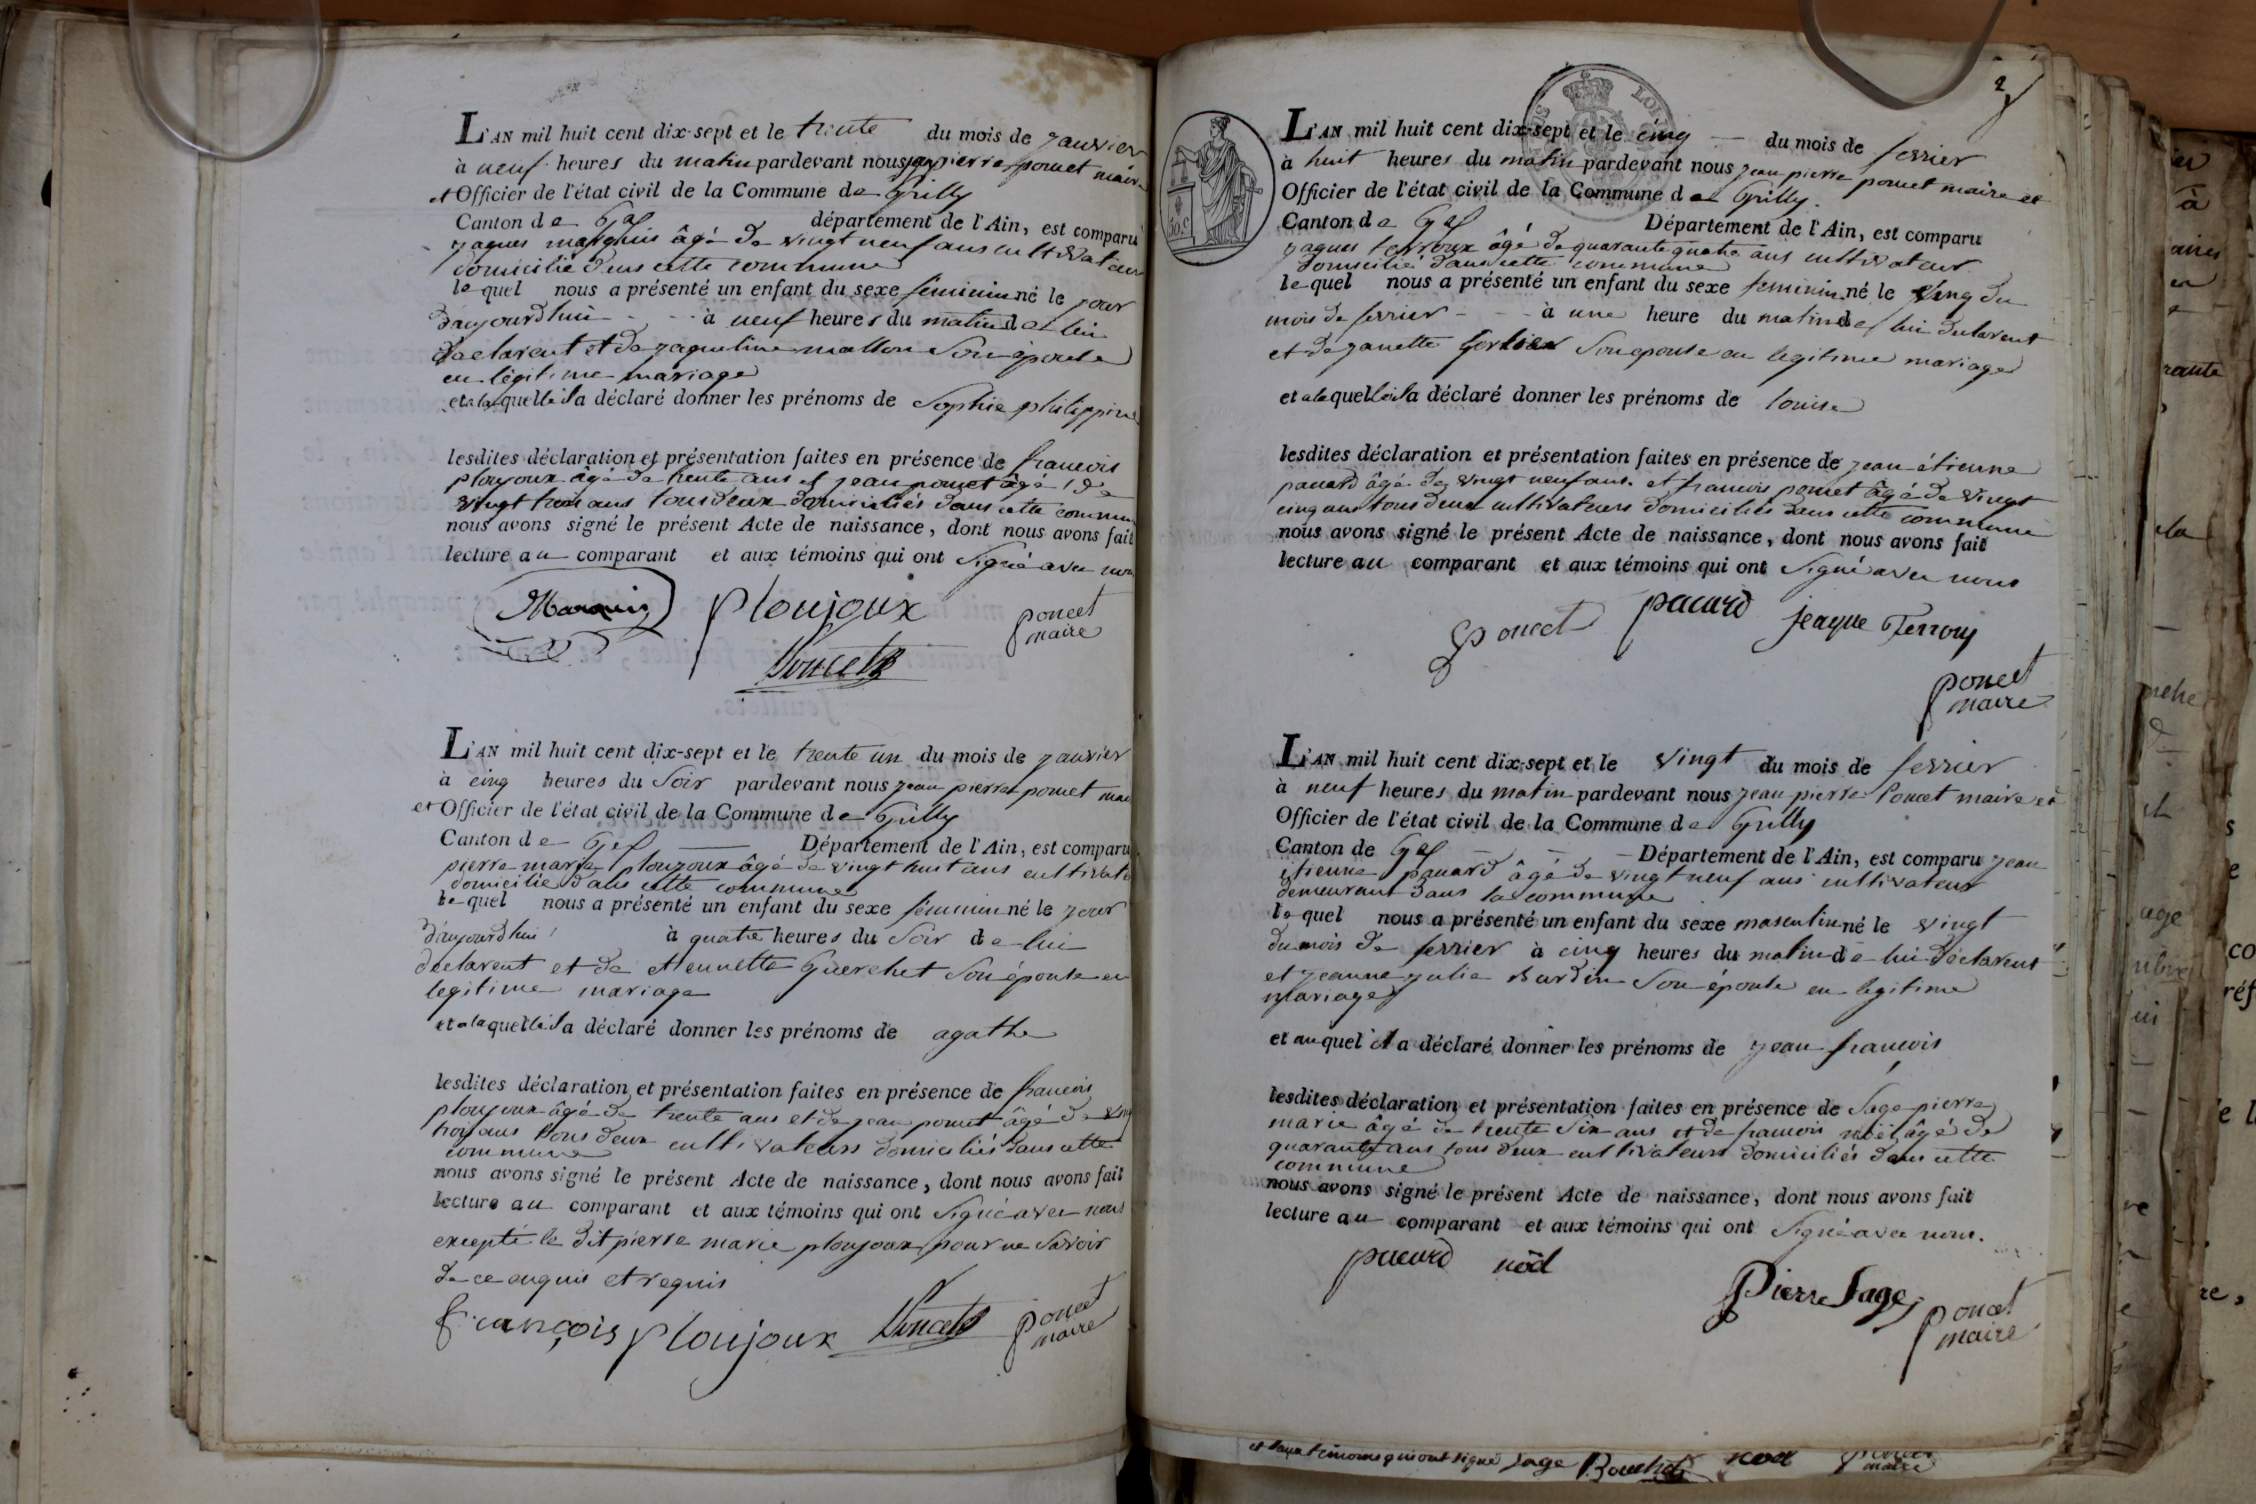 L'AN mil huit cent dix-sept et le trente du mois de janvier
à neuf heures du matin pardevant nous jean pierre poncet maire
et Officier de l'état civil de la Commune de Grilly
Canton de Gex département de l'Ain, est comparu
jaques marquis âgé de vingt neuf ans cultivateur
domicilié dans cette commune
lequel nous a présenté un enfant du sexe féminin né le jour
d'aujourdhui à neuf heures du matin de lui
déclarent et de jaqueline mallon son épouse
en légitime mariage
et a laquelle il a déclaré donner les prénoms de Sophie philippine
lesdites déclaration et présentation faites en présence de francois
ploujoux âgé de trente ans et jean poncet âgé de
vingt trois ans tous deux domiciliés dans cette commune
nous avons signé le présent Acte de naissance, dont nous avons fait
lecture au comparant et aux témoins qui ont signé avec nous
Marquis ploujoux poncet
maire
Poncet
L'AN mil huit cent dix-sept et le trente un du mois de janvier
à cinq heures du soir pardevant nous jean pierre poncet maire
et Officier de l'état civil de la Commune de Grilly
Canton de Gex Département de l'Ain, est comparu
pierre marie ploujoux âgé de vingt huit ans cultivateur
domicilié dans cette commune
lequel nous a présenté un enfant du sexe féminin né le jour
d'aujourdhui à quatre heures du soir de lui
déclarent et de etiennette Guerchet son épouse en
legitime mariage
et a laquelle il a déclaré donner les prénoms de agathe
lesdites déclaration et présentation faites en présence de francois
ploujoux âgé de trente ans et de jean poncet âgé de vingt
trois ans tous deux cultivateurs domiciliés dans cette
commune
nous avons signé le présent Acte de naissance, dont nous avons fait
lecture au comparant et aux témoins qui ont signé avec nous
excepté le dit pierre marie ploujoux pour ne savoir
de ce enquis et requis
françois ploujoux Poncet poncet
maire
2
L'AN mil huit cent dix-sept et le cinq du mois de fevrier
à huit heures du matin pardevant nous jean pierre poncet maire et
Officier de l'état civil de la Commune de Grilly.
Canton de Gex Département de l'Ain, est comparu
jaques terroux âgé de quarante quatre ans cultivateur
domicilié dans cette commune
lequel nous a présenté un enfant du sexe feminin né le cinq du
mois de fevrier à une heure du matin de lui declarent
et de janette son epouse en legitime mariage
et a laquelle il a déclaré donner les prénoms de louise
lesdites déclaration et présentation faites en présence de jean étienne
pacard âgé de vingt neuf ans. et francois poncet âgé de vingt
cinq ans tous deux cultivateurs domiciliés dans cette commune
nous avons signé le présent Acte de naissance, dont nous avons fait
lecture au comparant et aux témoins qui ont signé avec nous
poncet pacard jeaque Terroux
poncet
maire
L'AN mil huit cent dix-sept et le vingt du mois de fevrier
à neuf heures du matin pardevant nous jean pierre Poncet maire et
Officier de l'état civil de la Commune de Grilly
Canton de Gex Département de l'Ain, est comparu jean
etienne pacard âgé de vingt neuf ans cultivateur
demeurant dans la commune
lequel nous a présenté un enfant du sexe masculin né le vingt
du mois de fevrier à cinq heures du matin de lui déclarent
et jeanne julie Bardin son épouse en legitime
mariage
et auquel il a déclaré donner les prénoms de jean francois
lesdites déclaration et présentation faites en présence de Sage pierre
marie âgé de trente six ans et de francois noël âgé de
quarante ans tous deux cultivateurs domiciliés dans cette
commune
nous avons signé le présent Acte de naissance, dont nous avons fait
lecture au comparant et aux témoins qui ont signé avec nous.
pacard noël
Pierre Sage poncet
maire
et aux témoins qui ont signé Sage noel poncet
maire